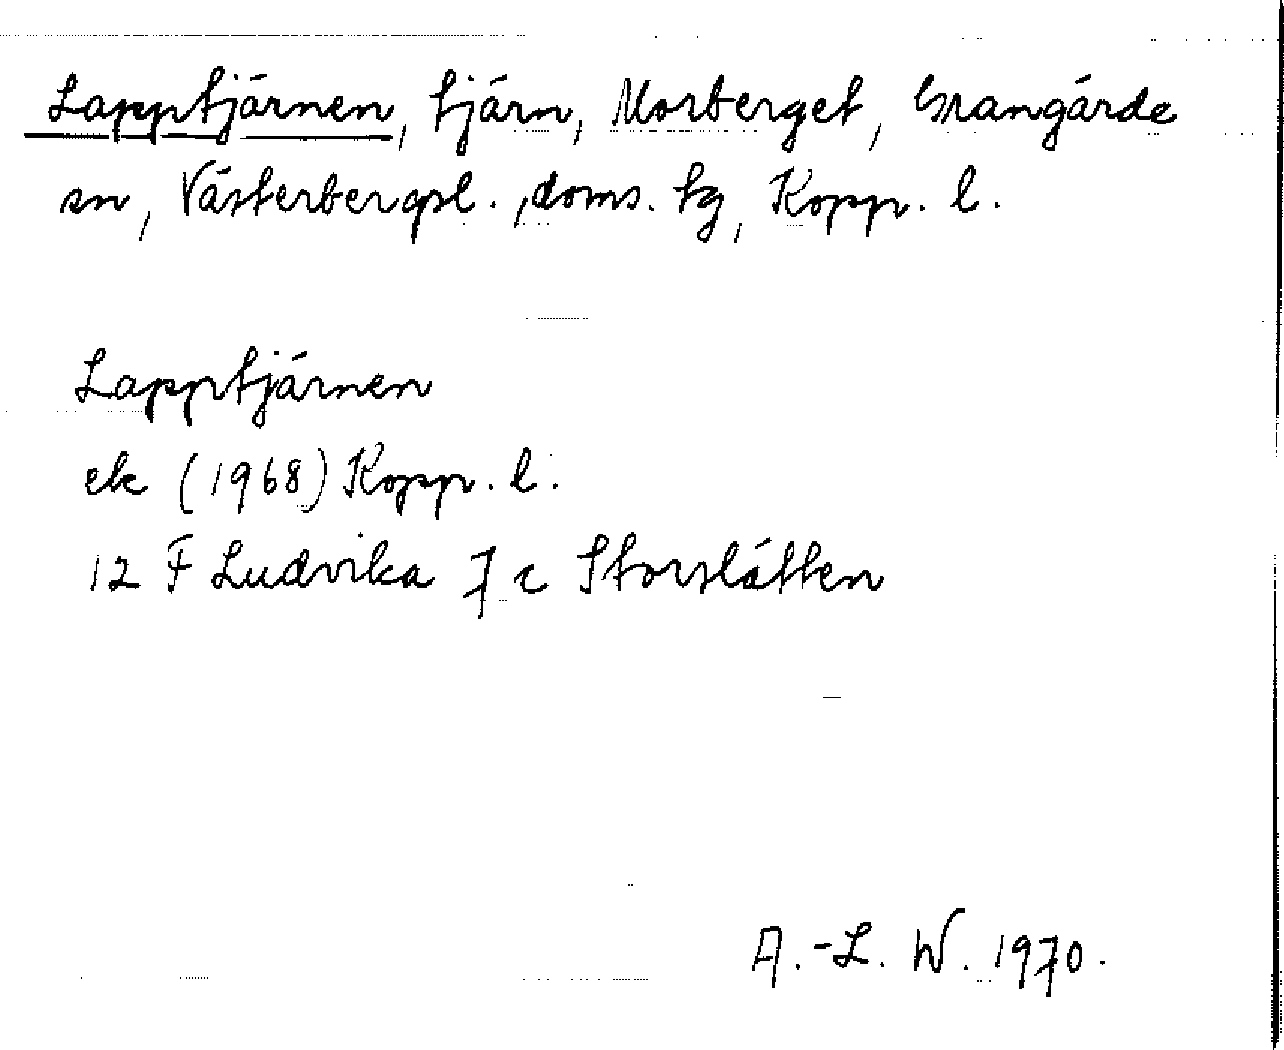 Lapptjärnen, tjärn, Morberget, Grangärde
sn, Västerbergsl., doms. tg, Kopp. l.
Lapptjärnen
ek (1968) Kopp. l.
12 F Ludvika 7 c Storslátten
A.-L. W. 1970.